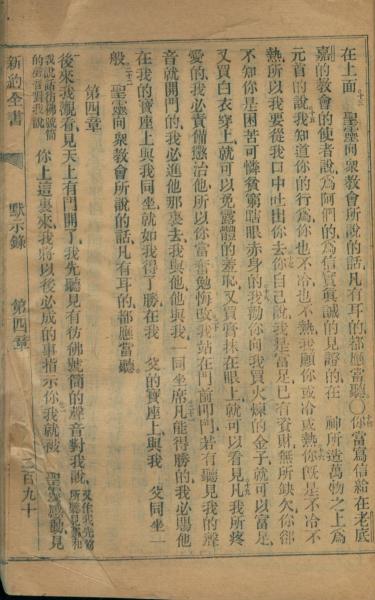 在上面 聖靈向衆教會所說的話凡有耳的都應當聽〇你當寫信給在老底
嘉的教會的使者說爲阿們的爲信實眞誠的見證的在 神所造萬物之上爲
元首的說我知道你的行爲你也不冷也不熱我願你或冷或熱你旣是不冷不
熱所以我要從我口中吐出你去你自己說我是富足已有貲財無所缺欠你卻
不知你是困苦可憐貧窮瞎眼赤身的我勸你向我買火煉的金子就可以富足
又買白衣穿上就可以免露體的羞恥又買膏抹在眼上就可以看見凡我所疼
愛的我必責備懲治他所以你當奮勉悔改我站在門前叩門若有聽見我的聲
音就開門的我必進他那裏去我與他他與我一同坐席凡能得勝的我必賜他
在我的寶座上與我同坐就如我得了勝在我 父的寶座上與我 父同坐一
般 聖靈向衆教會所說的話凡有耳的都應當聽
第四章
後來我觀看見天上有門開了我先聽見有彷彿號筒的聲音對我說
你上這裏來我將以後必成的事指示你我就被 聖靈感動見
新約全書 默示錄 第四章 三百九十